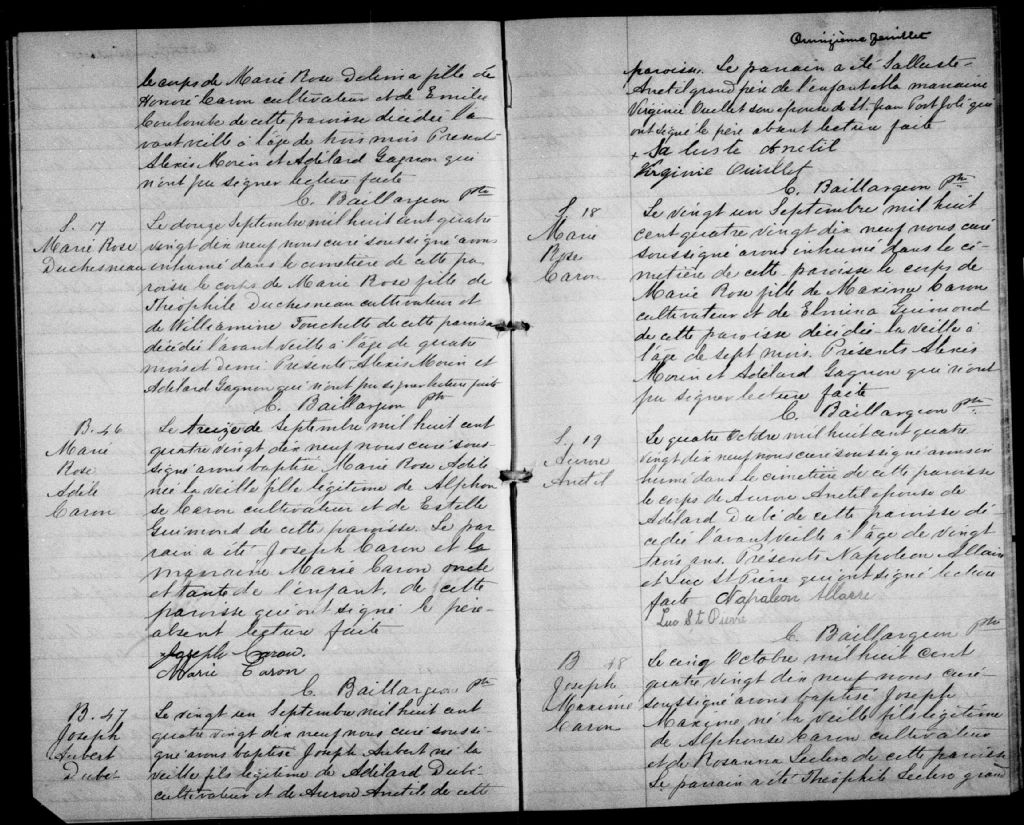 le corps de Marie Rose Delima fille de
Honoré Caron cultivateur et de Emilie
Coulombe de cette paroisse décédée l'a
vant veille à l'âge de trois mois Présents
Alexis Morin et Adélard Gagnon qui
n'ont pu signer lecture faite
C. Baillargeon Ptre
S. 17
Marie Rose
Duchesneau
Le douze Septembre mil huit cent quatre
vingt dix neuf nous curé soussigné avons
inhumé dans le cimetière de cette pa
roisse le corps de Marie Rose fille de
Théophile Duchesneau cultivateur et
de Williamine Touchette de cette paroisse
décédée l'avant veille à l'âge de quatre
mois et demi. Présents Alexis Morin et
Adélard Gagnon qui n'ont pu signer lecture faite
C. Baillargeon Ptre
B. 46
Marie
Rose
Adèle
Caron
Le treize de Septembre mil huit cent
quatre vingt dix neuf nous curé sous-
signé avons baptisé Marie Rose Adèle
née la veille fille légitime de Alphon
se Caron cultivateur et de Estelle
Guimond de cette paroisse. Le par
rain a été Joseph Caron et la
marraine Marie Caron oncle
et tante de l'enfant, de cette
paroisse qui ont signé le père
absent lecture faite
Joseph Caron.
Marie Caron
C. Baillargeon Ptre
B. 47
Joseph
Aubert
Dubé
Le vingt un Septembre mil huit cent
quatre vingt dix neuf nous curé soussi-
gné avons baptisé Joseph Aubert né la
veille fils légitime de Adélard Dubé
cultivateur et de Aurore Anctil de cette
Quinzième feuillet
paroisse. Le parrain a été Salluste
Anctil grand père de l'enfant et la marraine
Virginie Ouellet son épouse de St. Jean Port Joli qui
ont signé le père absent lecture faite
Saluste Anctil
Virginie Ouillet
C. Baillargeon Ptre
S. 18
Marie
Rose
Caron
Le vingt un Septembre mil huit
cent quatre vingt dix neuf nous curé
soussigné avons inhumé dans le ci-
metière de cette paroisse le corps de
Marie Rose fille de Maxime Caron
cultivateur et de Elmina Guimond
de cette paroisse décédée la veille à
l'âge de sept mois. Présents Alexis
Morin et Adélard Gagnon qui n'ont
pu signer lecture faite
C. Baillargeon Ptre
S. 19
Aurore
Anctil
Le quatre Octobre mil huit cent quatre
vingt dix neuf nous curé soussigné avons in
humé dans le cimetière de cette paroisse
le corps de Aurore Anctil épouse de
Adélard Dubé de cette paroisse dé
cédée l'avant veille à l'âge de vingt
trois ans. Présents Napoléon Allaire
et Luc St Pierre qui ont signé lecture
faite Napoléon Allaire
Luc St Pierre
C. Baillargeon Ptre
B 48
Joseph
Maxime
Caron
Le cinq Octobre mil huit cent
quatre vingt dix neuf nous curé
soussigné avons baptisé Joseph
Maxime né la veille fils légitime
de Alphonse Caron cultivateur
et de Rosanna Leclerc de cette paroisse
Le parrain a été Théophile Leclerc grand